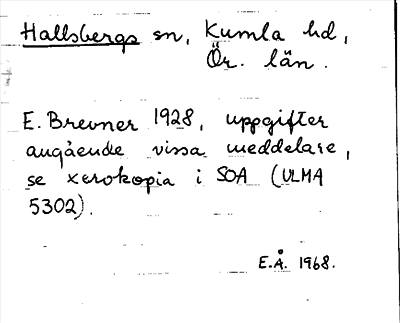 Hallsbergs sn, Kumla hd,
Ör. län.
E. Brevner 1928, uppgifter
angående vissa meddelare,
se xerokopia i SOA (ULMA
5302).
E.Å. 1968.